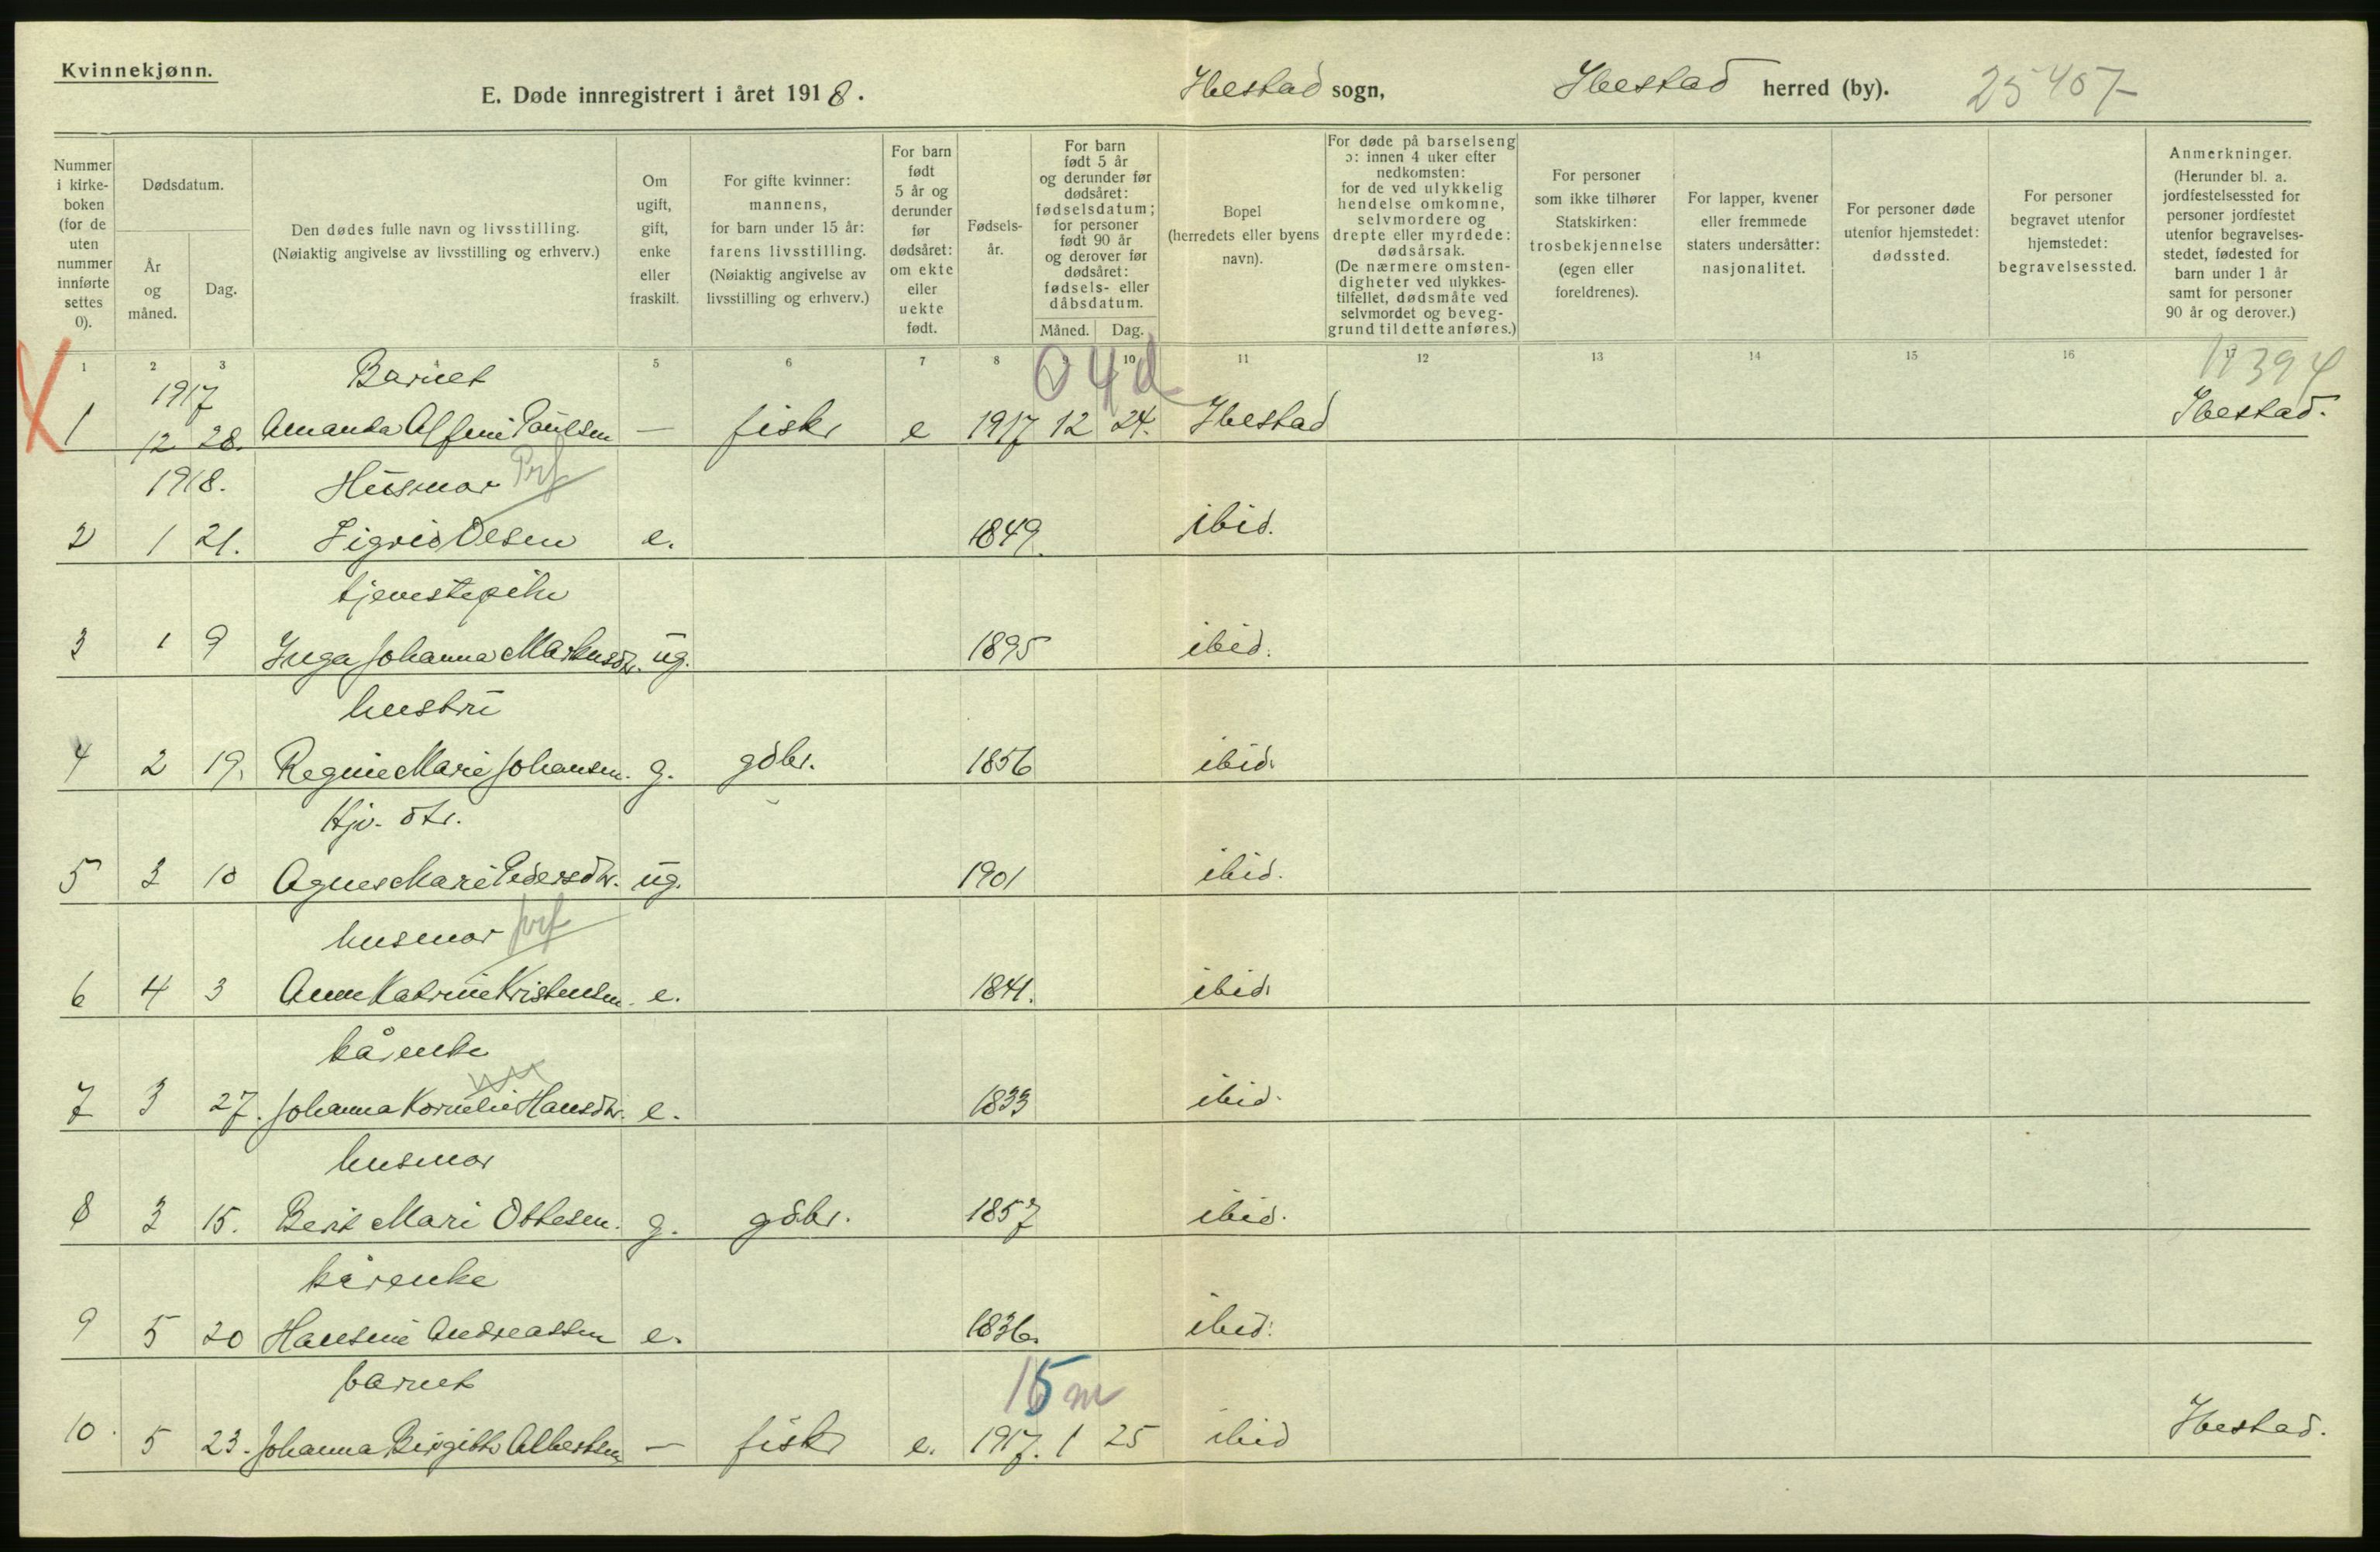 Kvinnekjønn.
E. Døde innregistrert i året 1918. Ibestad sogn, Ibestad herred (by). 25407
Nummer i kirke-boken (for de uten nummer innførte settes 0).
Dødsdatum.
År og måned.
Dag.
Den dødes fulle navn og livsstilling.
(Nøiaktig angivelse av livsstilling og erhverv.)
Om ugift, gift, enke eller fraskilt.
For gifte kvinner: mannens, for barn under 15 år: farens livsstilling. (Nøiaktig angivelse av livsstilling og erhverv.)
For barn født 5 år og derunder før dødsåret: om ekte eller uekte født.
Fødsels-år.
For barn født 5 år og derunder før dødsåret: fødselsdatum; for personer født 90 år og derover før dødsåret: fødsels- eller dåbsdatum.
Måned. Dag.
Bopel (herredets eller byens navn).
For døde på barselseng ɔ: innen 4 uker efter nedkomsten: for de ved ulykkelig hendelse omkomne, selvmordere og drepte eller myrdede: dødsårsak. (De nærmere omsten-digheter ved ulykkes-tilfellet, dødsmåte ved selvmordet og beveg-grund til dette anføres.)
For personer som ikke tilhører Statskirken: trosbekjennelse (egen eller foreldrenes).
For lapper, kvener eller fremmede staters undersåtter: nasjonalitet.
For personer døde utenfor hjemstedet: dødssted.
For personer begravet utenfor hjemstedet: begravelsessted.
Anmerkninger. (Herunder bl. a. jordfestelsessted for personer jordfestet utenfor begravelses-stedet, fødested for barn under 1 år samt for personer 90 år og derover.)
1 2 3 4 5 6 7 8 9 10 11 12 13 14 15 16 17
1917 Barnet 0 4 d 11394
1 12 28. Amanda Alfine Paulsen — fisker e 1917 12 24. Ibestad Ibestad.
1918. Husmor Prf
2 1 21. Sigrid Olsen e. 1849. ibid.
tjenestepike
3 1 9 Inga Johanna Markusdtr. ug. 1895 ibid.
hustru
4 2 19. Regine Marie Johansen. g. gdbr. 1856 ibid.
Hjv. dtr.
5 3 10 Agnes Marie Pedersdtr. ug. 1901 ibid.
husmor prf
6 4 3 Anne Katrine Kristensen. e. 1841. ibid.
kårenke
7 3 27. Johanna Kornelie Hansdtr. e. 1833 ibid.
husmor
8 3 15. Berit Mari Ottesen. g. gdbr. 1857 ibid.
kårenke
9 5 20 Hansine Andreassen e. 1836. ibid.
barnet 15 m
10. 5 23. Johanna Birgitte Albertsen — fisker e. 1917. 1 25 ibid Ibestad.